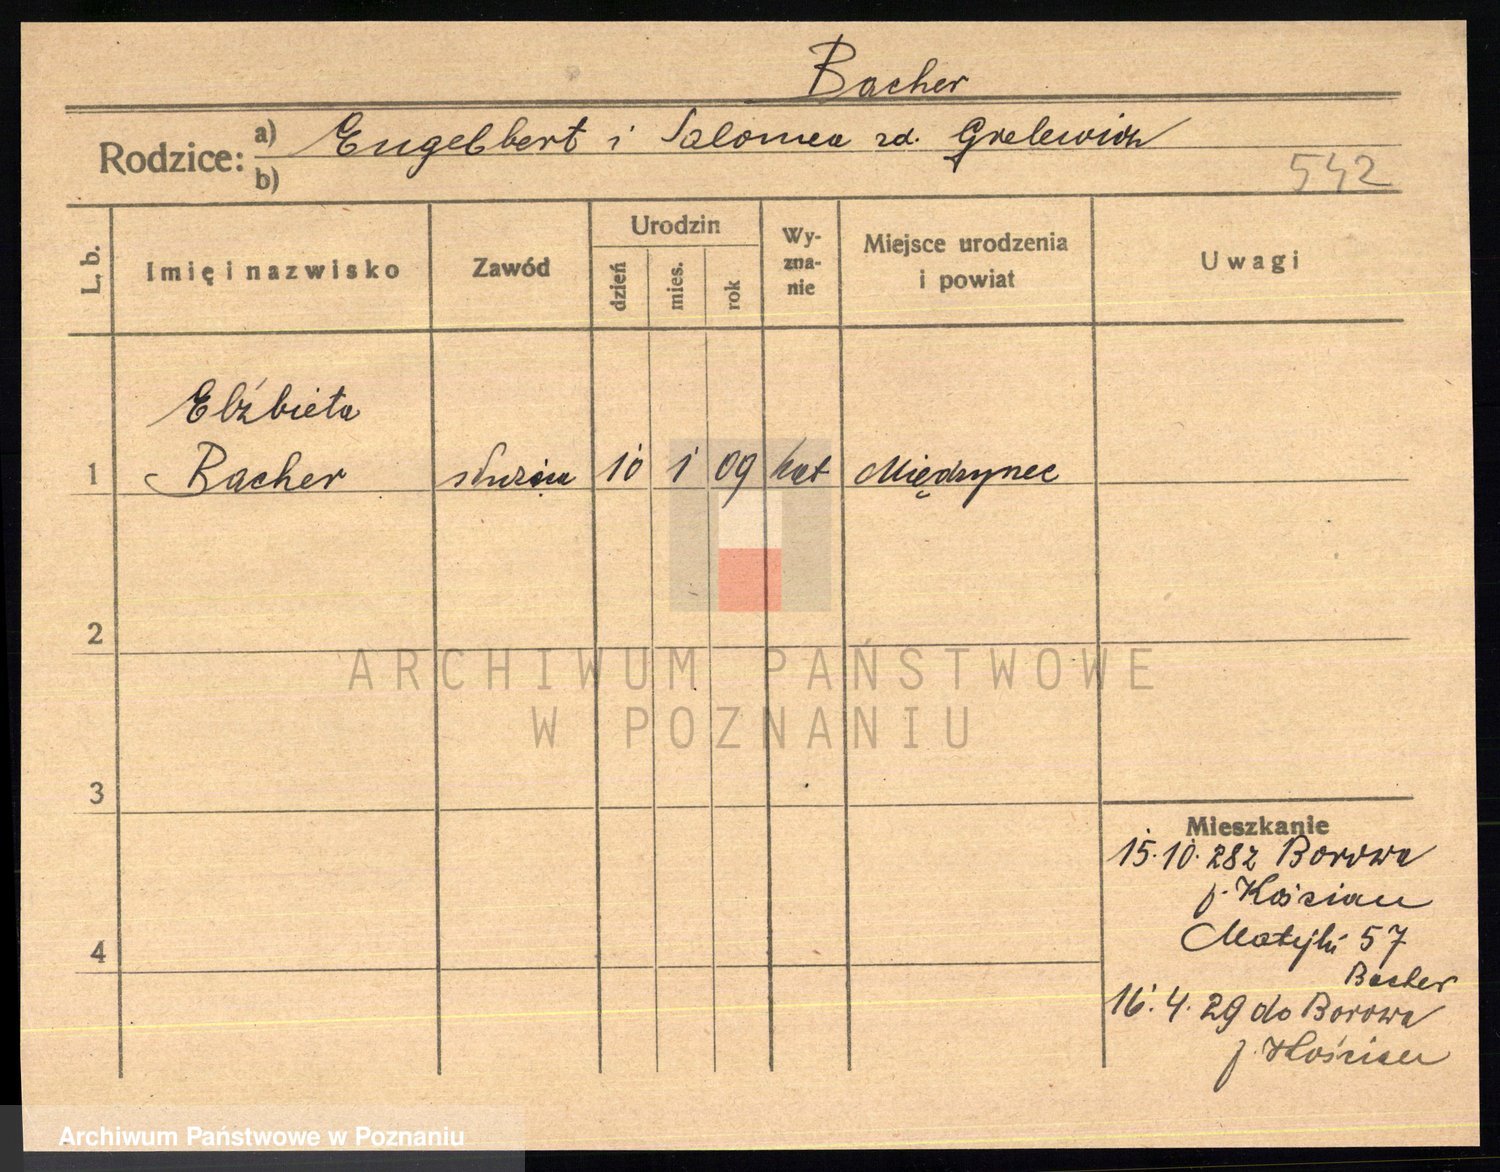 Bacher
Rodzice: a) Engelbert i Salomea zd. Grelewicz
b)
542
L. b.
Imię i nazwisko
Zawód
Urodzin
dzień
mies.
rok
Wy-
zna-
nie
Miejsce urodzenia
i powiat
Uwagi
Elżbieta
1 Bacher służąca 10 1 09 kat
2
3
4
Mieszkanie
15.10.28 z Borowa
p. Kościan
Matejki 57
Bacher
16.4.29 do Borowa
p. Kościan
ARCHIWUM PAŃSTWOWE
W POZNANIU
Archiwum Państwowe w Poznaniu